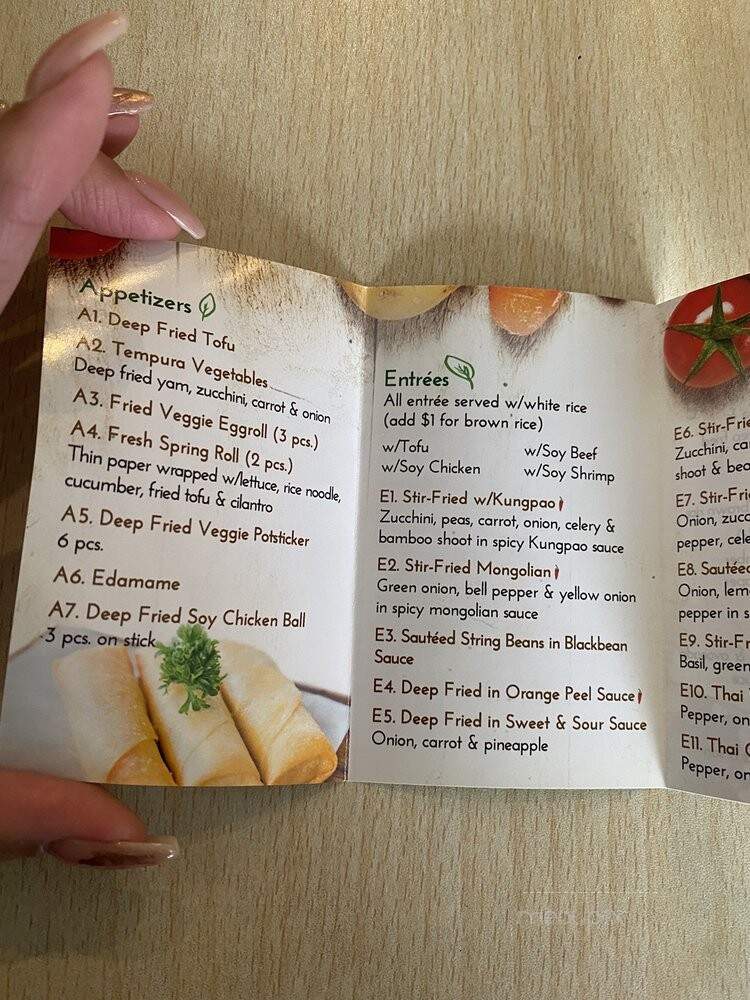 Appetizers
A1. Deep Fried Tofu
A2. Tempura Vegetables
Deep fried yam, zucchini, carrot & onion
A3. Fried Veggie Eggroll (3 pcs.)
A4. Fresh Spring Roll (2 pcs.)
Thin paper wrapped w/lettuce, rice noodle,
cucumber, fried tofu & cilantro
A5. Deep Fried Veggie Potsticker
6 pcs.
A6. Edamame
A7. Deep Fried Soy Chicken Ball
3 pcs. on stick
Entrées
All entrée served w/white rice
(add $1 for brown rice)
w/Tofu w/Soy Beef
w/Soy Chicken w/Soy Shrimp
E1. Stir-Fried w/Kungpao
Zucchini, peas, carrot, onion, celery &
bamboo shoot in spicy Kungpao sauce
E2. Stir-Fried Mongolian
Green onion, bell pepper & yellow onion
in spicy mongolian sauce
E3. Sautéed String Beans in Blackbean
Sauce
E4. Deep Fried in Orange Peel Sauce
E5. Deep Fried in Sweet & Sour Sauce
Onion, carrot & pineapple
E6. Stir-Frie
Zucchini, ca
shoot & bea
E7. Stir-Fri
Onion, zucc
pepper, cele
E8. Sautéed
Onion, lem
pepper in s
E9. Stir-Fr
Basil, green
E10. Thai
Pepper, on
E11. Thai
Pepper, on